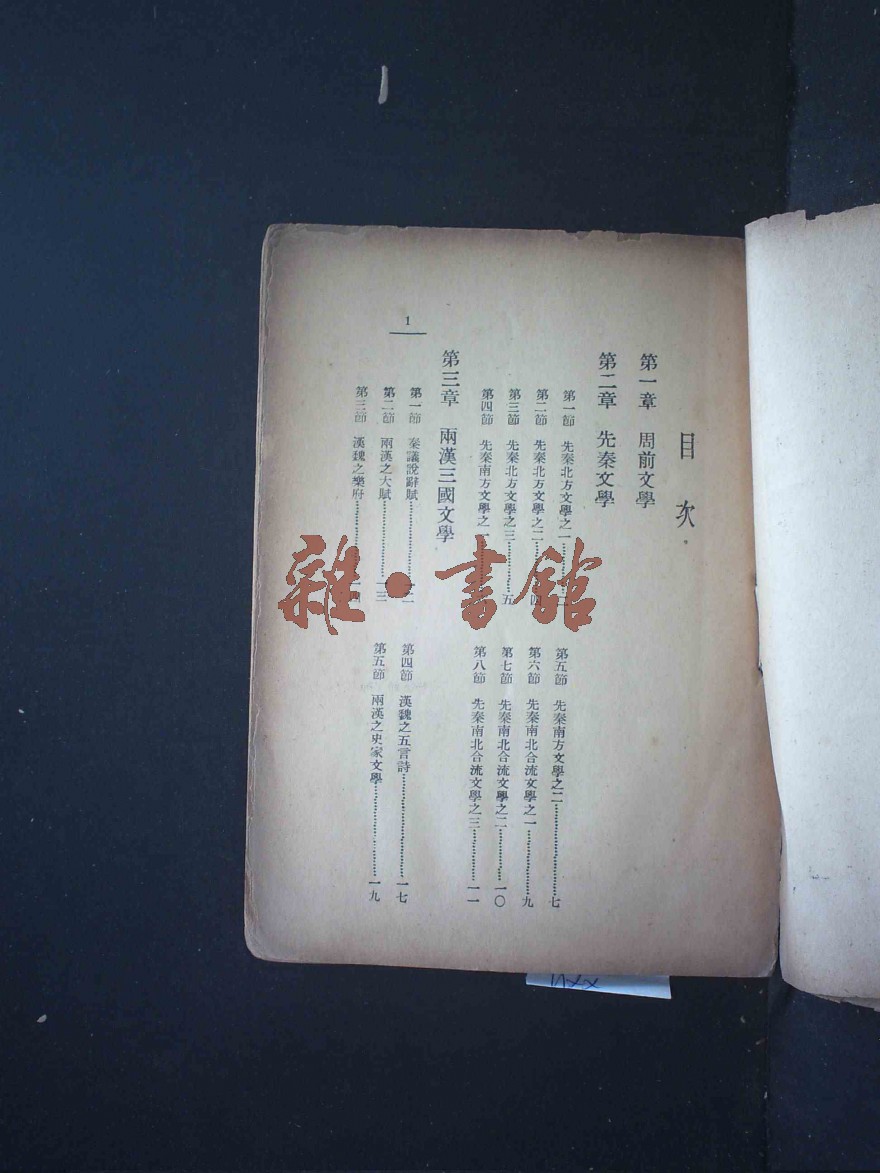 目次
第一章 周前文學
第二章 先秦文學
第一節 先秦北方文學之一…………二
第二節 先秦北方文學之二…………四
第三節 先秦北方文學之三…………五
第四節 先秦南方文學之一
第五節 先秦南方文學之二…………七
第六節 先秦南北合流文學之一…………九
第七節 先秦南北合流文學之二…………一〇
第八節 先秦南北合流文學之三…………一一
第三章 兩漢三國文學
第一節 奏議說辭賦…………一二
第二節 兩漢之大賦…………一三
第三節 漢魏之樂府…………一四
第四節 漢魏之五言詩…………一七
第五節 兩漢之史家文學…………一九
1
雜·書館